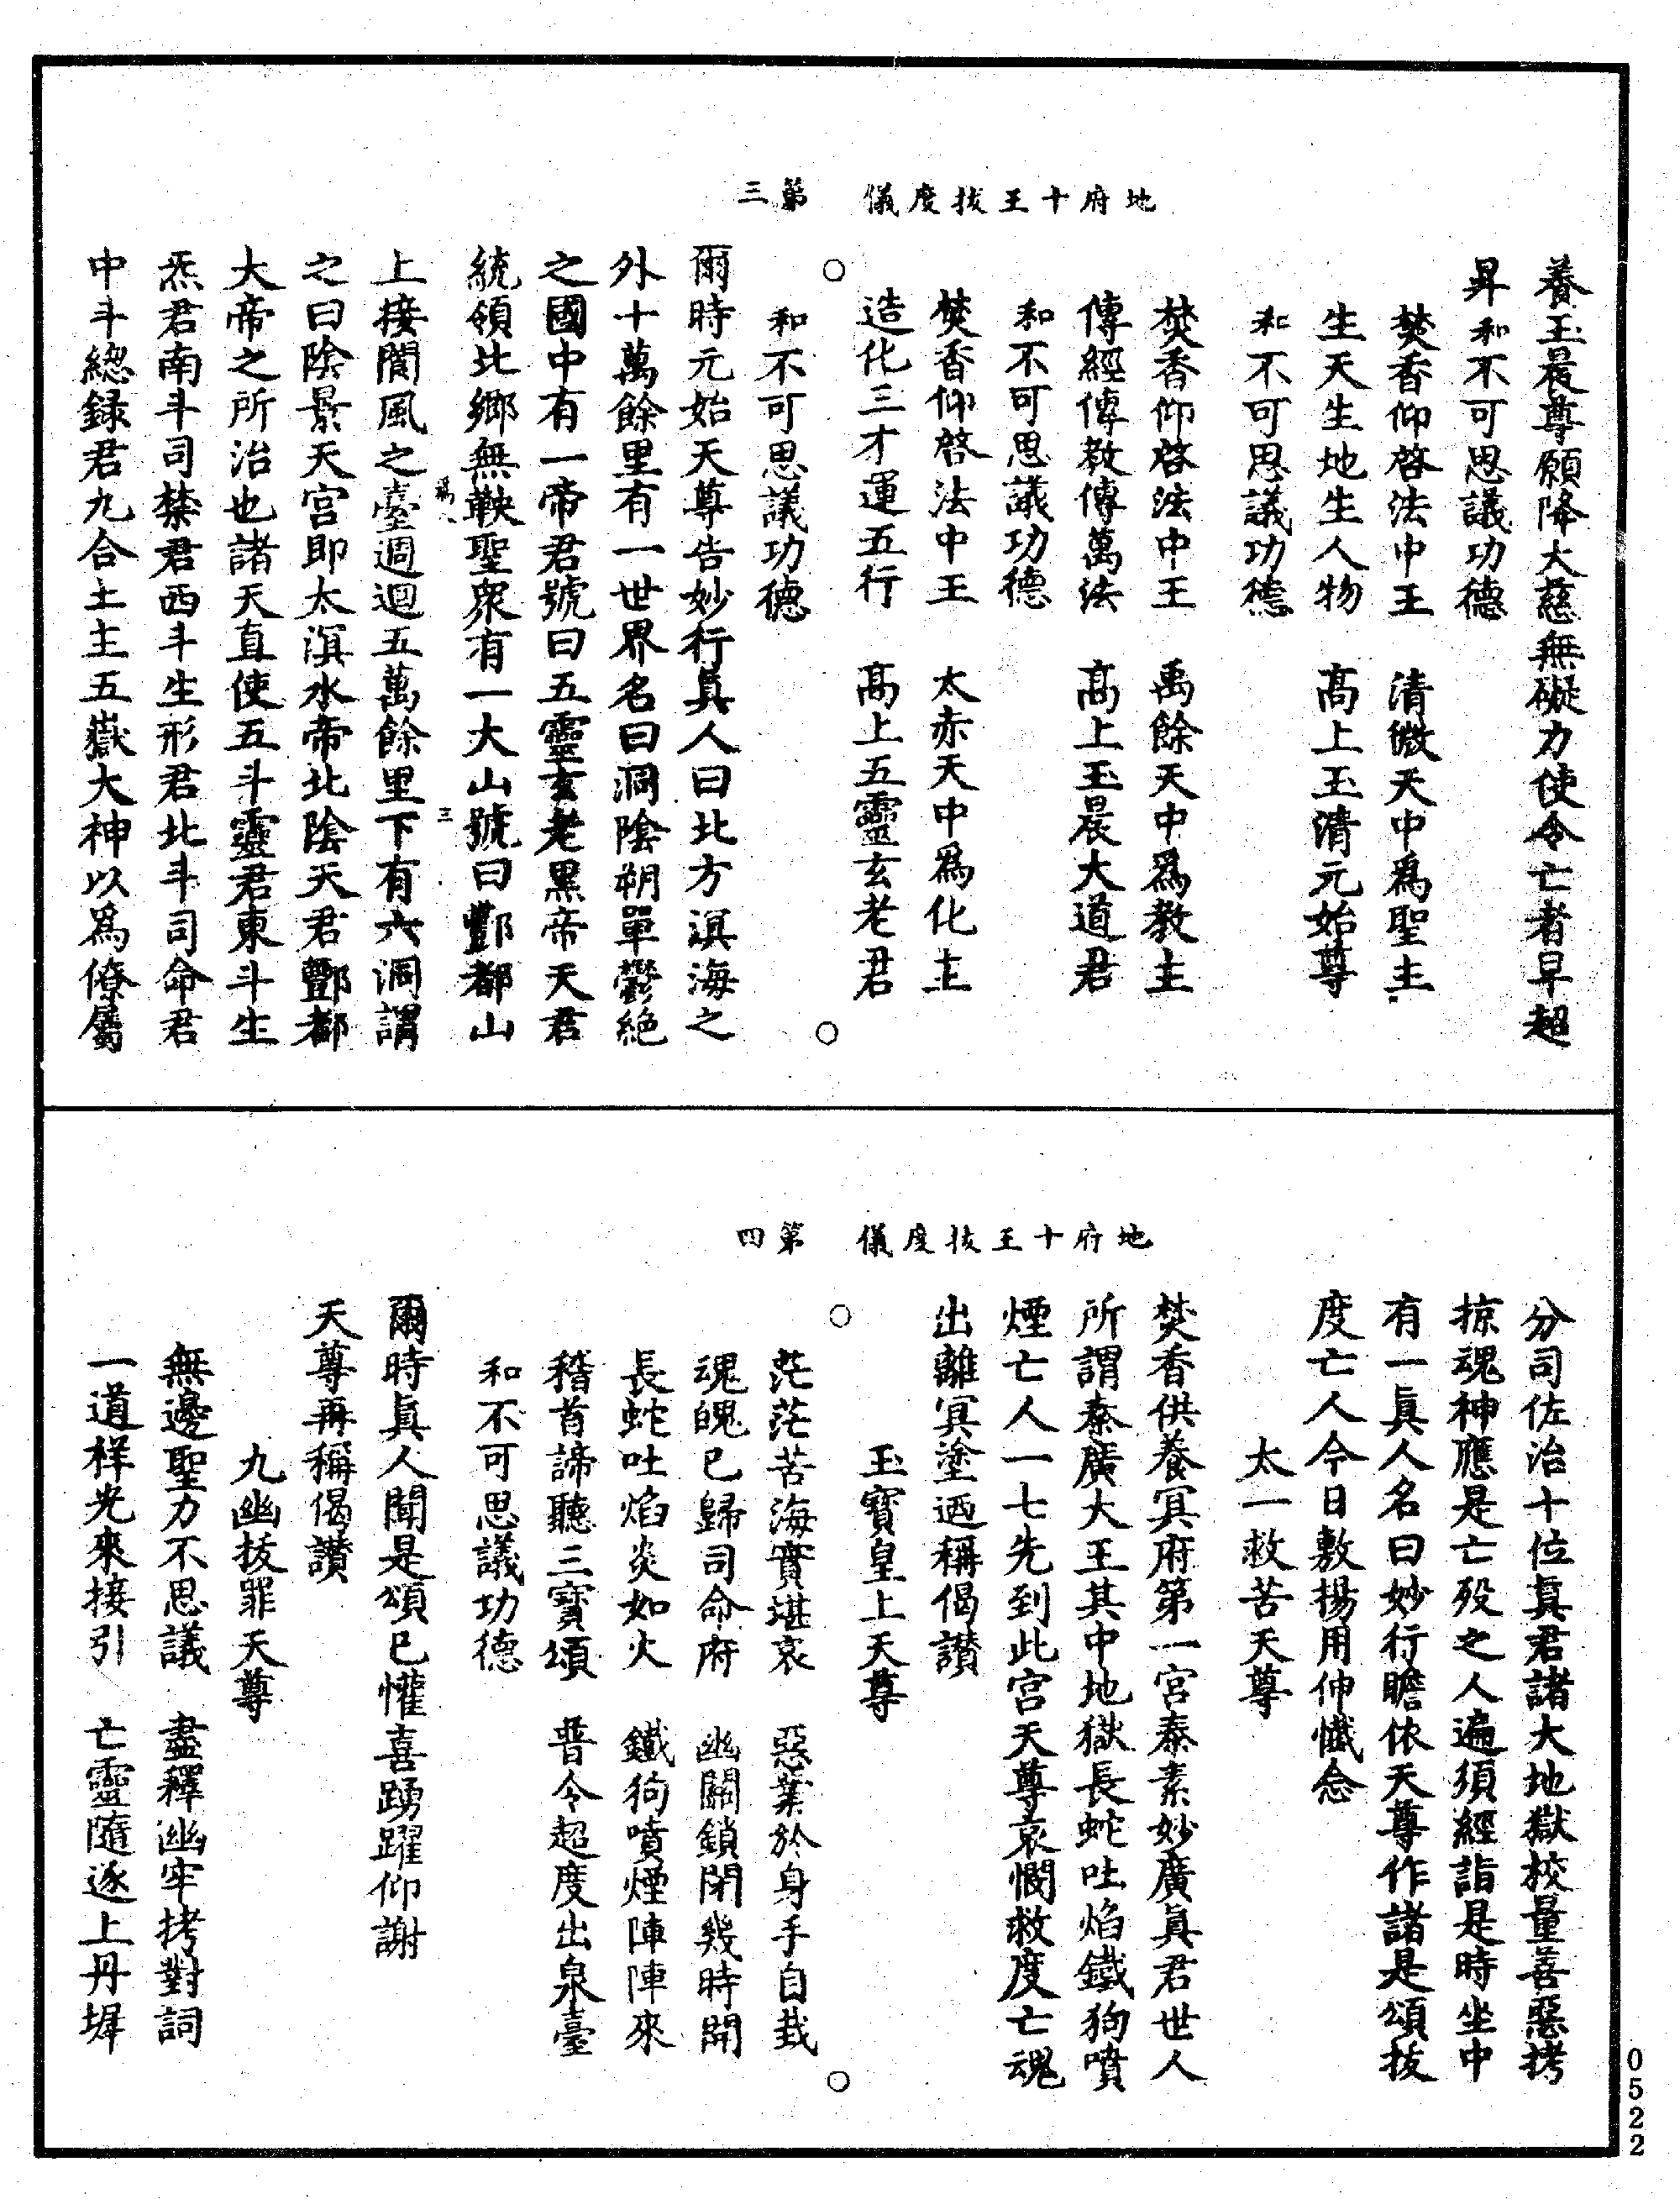 地府十王拔度儀　第三
養玉晨尊願降大慈無礙力使令亡者早超
昇和不可思議功德
焚香仰啓法中王　清微天中爲聖主
生天生地生人物　高上玉清元始尊
和不可思議功德
焚香仰啓法中王　禹餘天中爲教主
傳經傳教傳萬法　高上玉晨大道君
和不可思議功德
焚香仰啓法中王　太赤天中爲化主
造化三才運五行　高上五靈玄老君
○　○
和不可思議功德
爾時元始天尊告妙行眞人曰北方溟海之
外十萬餘里有一世界名曰洞陰朔單鬱絶
之國中有一帝君號曰五靈玄老黑帝天君
統領北鄉無鞅聖衆有一大山號曰酆都山
三
上接閬風之臺週迴五萬餘里下有六洞謂
之曰陰景天宮即太溟水帝北陰天君酆都
大帝之所治也諸天直使五斗靈君東斗生
炁君南斗司禁君西斗生形君北斗司命君
中斗總録君九合土主五嶽大神以爲僚屬
地府十王拔度儀　第四
分司佐治十位眞君諸大地獄校量善惡拷
掠魂神應是亡歿之人遍須經詣是時坐中
有一眞人名曰妙行瞻依天尊作諸是頌拔
度亡人今日敷揚用伸懺念
太一救苦天尊
焚香供養冥府第一宮泰素妙廣眞君世人
所謂秦廣大王其中地獄長蛇吐焰鐵狗噴
煙亡人一七先到此宮天尊哀憫救度亡魂
出離冥塗迺稱偈讃
玉寳皇上天尊
○　○
茫茫苦海實堪哀　惡業於身手自栽
魂魄已歸司命府　幽關鎖閉幾時開
長蛇吐焰炎如火　鐵狗噴煙陣陣來
稽首諦聽三寳頌　普令超度出泉臺
和不可思議功德
爾時眞人聞是頌已懽喜踴躍仰謝
天尊再稱偈讃
九幽拔罪天尊
無邊聖力不思議　盡釋幽牢拷對詞
一道祥光來接引　亡靈隨逐上丹墀
0522